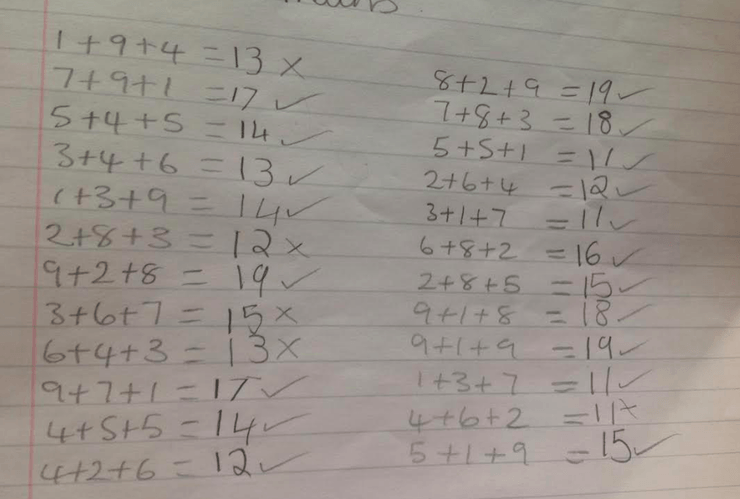 1+9+4 = 13 ×
7+9+1 = 17 ✓
5+4+5 = 14 ✓
3+4+6 = 13 ✓
1+3+9 = 14 ✓
2+8+3 = 12 ×
9+2+8 = 19 ✓
3+6+7 = 15 ×
6+4+3 = 13 ×
9+7+1 = 17 ✓
4+5+5 = 14 ✓
4+2+6 = 12 ✓
8+2+9 = 19 ✓
7+8+3 = 18 ✓
5+5+1 = 11 ✓
2+6+4 = 12 ✓
3+1+7 = 11 ✓
6+8+2 = 16 ✓
2+8+5 = 15 ✓
9+1+8 = 18 ✓
9+1+9 = 19 ✓
1+3+7 = 11 ✓
4+6+2 = 11 ×
5+1+9 = 15 ✓